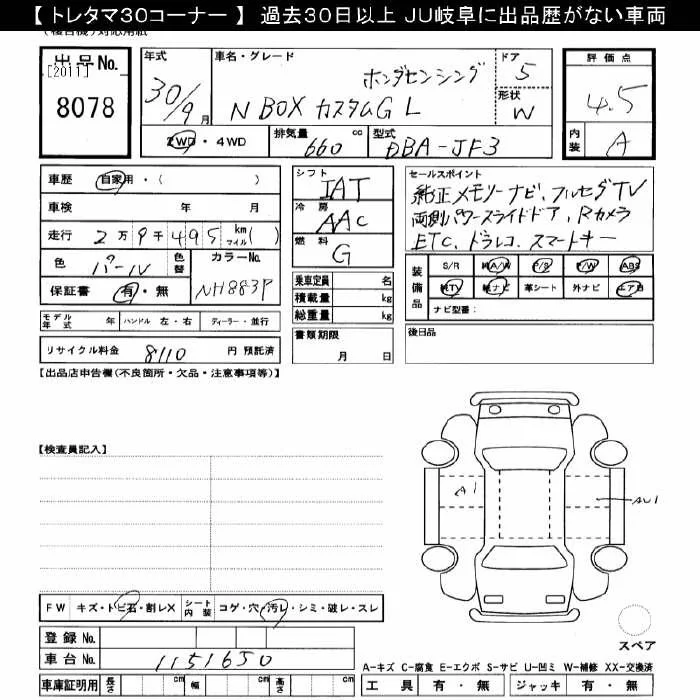 【 トレタマ30コーナー 】 過去30日以上 JU岐阜に出品歴がない車両
出品No. [2011]
8078
年式 30/9 月
車名・グレード ホンダセンシング
N BOX カスタムG L
ドア 5
形状 W
評価点 4.5
内装 A
2WD ・ 4WD 排気量 660 cc 型式 DBA-JF3
車歴 自家用・( )
車検 年 月
走行 2万9千495 km マイル( )
色 パール 色替 カラーNo. NH883P
保証書 有・無
モデル年式 年 ハンドル 左・右 ディーラー・並行
リサイクル料金 8110 円 預託済
シフト IAT
冷房 AAC
燃料 G
乗車定員 名
積載量 kg
総重量 kg
書類期限
月 日
セールスポイント
純正メモリーナビ、フルセグTV
両側パワースライドドア、Rカメラ
ETC、ドラレコ、スマートキー
装備品 S/R 純A/W P/S P/W ABS
純TV 純ナビ 革シート 外ナビ エアB
ナビ型番:
後日品
【出品店申告欄(不良箇所・欠品・注意事項等)】
【検査員記入】
A1
AU1
FW キズ・トビ石・割レX シート内装 コゲ・穴・汚レ・シミ・破レ・スレ
登録No.
車台No. 1151650
車庫証明用 長さ cm 幅 cm 高さ cm
スペア
A-キズ C-腐食 E-エクボ S-サビ U-凹ミ W-補修 XX-交換済
工具 有・無 ジャッキ 有・無